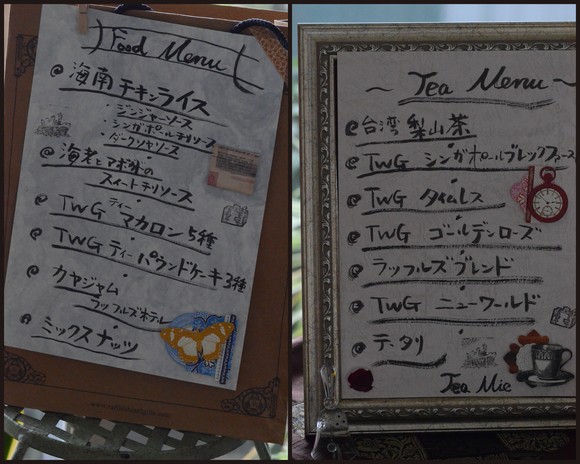 Food Menu
@ 海南チキンライス
・ジンジャーソース
・シンガポールチリソース
・ダークソヤソース
@ 海老とマボ味の
スイートチリソース
@ TWG ティー マカロン 5種
@ TWG ティー パウンドケーキ 3種
@ カヤジャム
ラッフルズホテル
@ ミックスナッツ
~ Tea Menu ~
@ 台湾 梨山茶
@ TWG シンガポールブレックファースト
@ TWG タイムレス
@ TWG ゴールデンローズ
@ ラッフルズブレンド
@ TWG ニューワールド
@ テ・タリ
Tea Mie